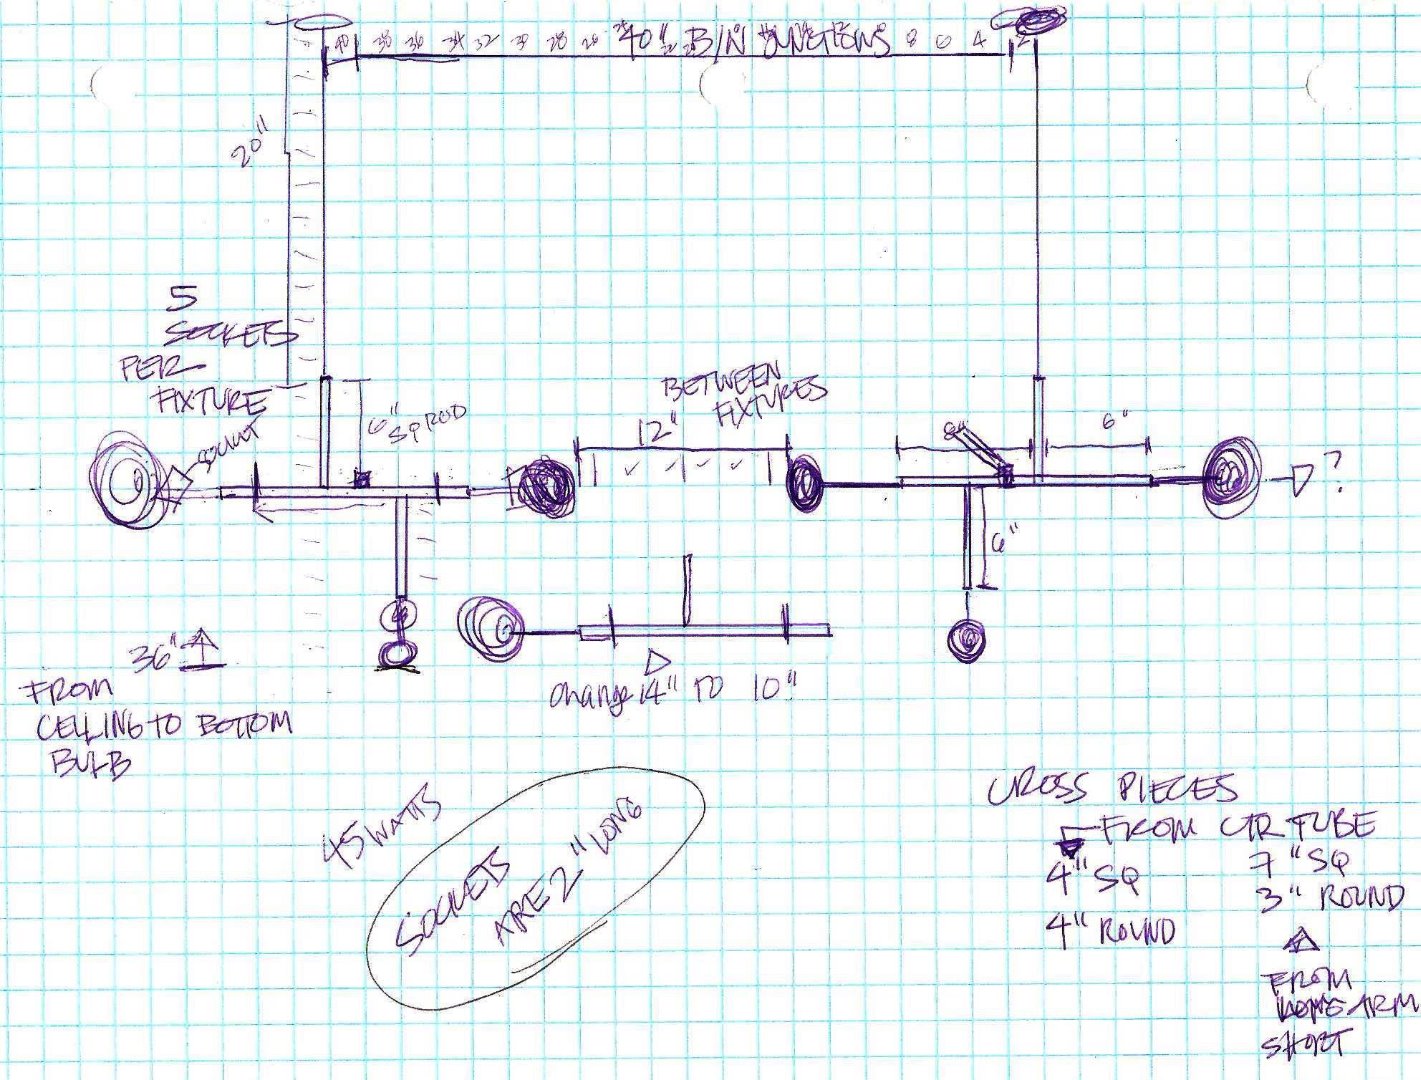 40 38 36 34 32 30 28 26 40" B/N JUNCTIONS 8 6 4 2
20"
5
SOCKETS
PER
FIXTURE
SOCKET
6"
SQ ROD
BETWEEN
FIXTURES
12"
8"
6"
?
6"
36"
FROM
CEILING TO BOTTOM
BULB
Change 14" TO 10"
45 WATTS
SOCKETS
ARE 2" LONG
CROSS PIECES
FROM CTR TUBE
4" SQ 7" SQ
4" ROUND 3" ROUND
FROM
SHORT